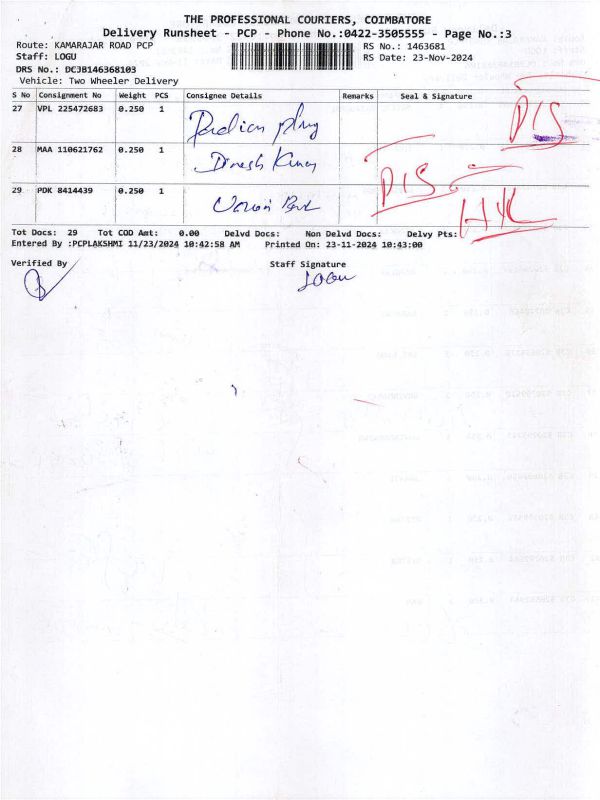 THE PROFESSIONAL COURIERS, COIMBATORE
Delivery Runsheet - PCP - Phone No.:0422-3505555 - Page No.:3
Route: KAMARAJAR ROAD PCP RS No.: 1463681
Staff: LOGU RS Date: 23-Nov-2024
DRS No.: DCJB146368103
Vehicle: Two Wheeler Delivery
S No Consignment No Weight PCS Consignee Details Remarks Seal & Signature
27 VPL 225472683 0.250 1
28 MAA 110621762 0.250 1 Dinesh Kumar
29 PDK 8414439 0.250 1
D/S
D/S
Tot Docs: 29 Tot COD Amt: 0.00 Delvd Docs: Non Delvd Docs: Delvy Pts:
Entered By :PCPLAKSHMI 11/23/2024 10:42:58 AM Printed On: 23-11-2024 10:43:00
Verified By Staff Signature
Logu